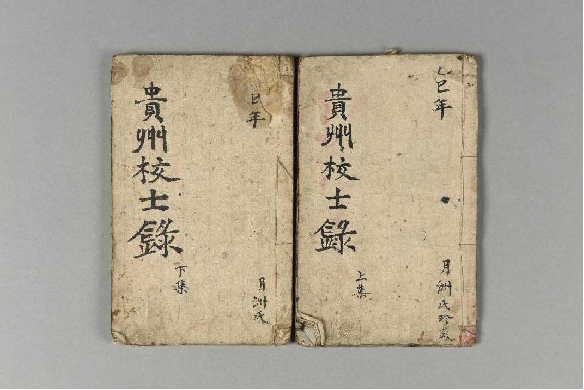 乙巳年
貴州校士錄
上集
月洲氏珍藏
巳年
貴州校士錄
下集
月洲氏